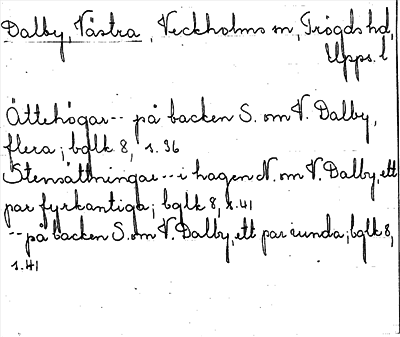 Dalby, Västra, Veckholms sn, Trögds hd,
Upps. l
Ättehögar -- på backen S. om V. Dalby,
flera; bglk 8, s. 36
Stensättningar -- i hagen N. om V. Dalby, ett
par fyrkantiga; bglk 8, s. 41
-- på backen S. om V. Dalby, ett par runda; bglk 8,
s. 41